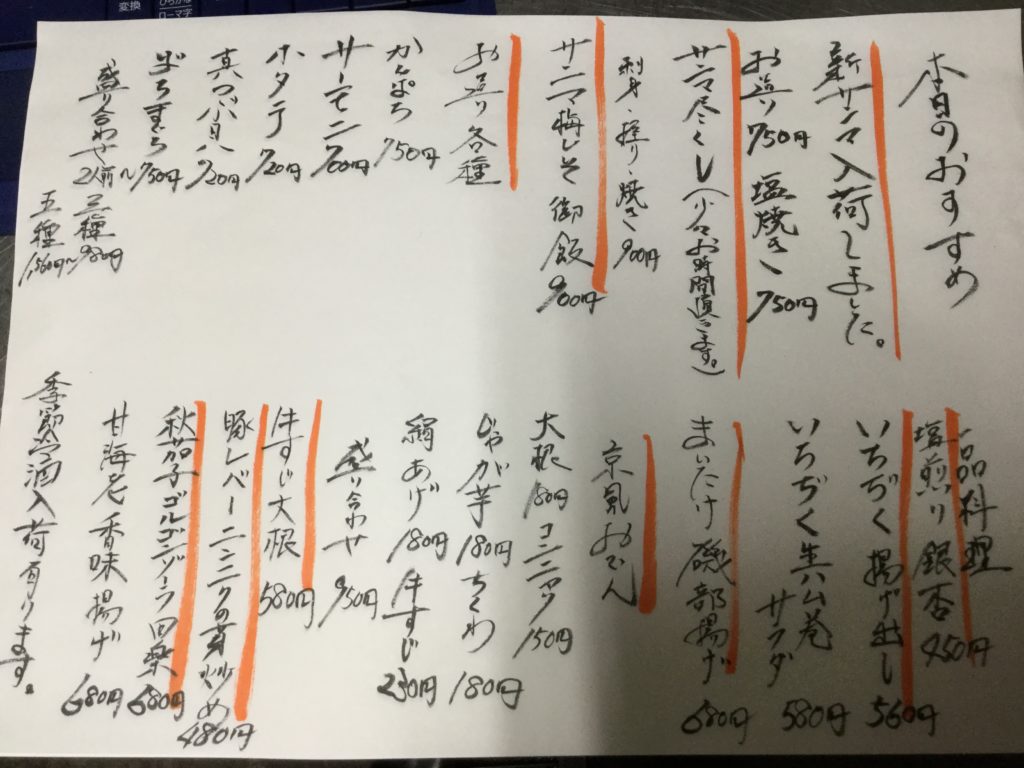 本日のおすすめ
新サンマ入荷しました。
お造り 750円 塩焼き 750円
サンマ尽くし(少々お時間頂きます。)
刺身・握り・焼き 900円
サンマ梅しそ御飯 900円
お造り各種
かんぱち 750円
サーモン 700円
ホタテ 720円
真つぶ貝 720円
生さば 750円
盛り合わせ 2人前~ 三種 980円
五種 1,560円~
一品料理
塩煎り銀杏 450円
いちぢく揚げ出し 560円
いちぢく生ハム巻サラダ 580円
まいたけ磯部揚げ 680円
京風おでん
大根 180円 コンニャク 150円
じゃが芋 180円 ちくわ 180円
絹あげ 180円 牛すじ 250円
盛り合わせ 950円
牛すじ大根 580円
豚レバーニンニクの芽炒め 480円
秋茄子ゴルゴンゾーラ田楽 680円
甘海老香味揚げ 680円
季節の酒入荷有ります。